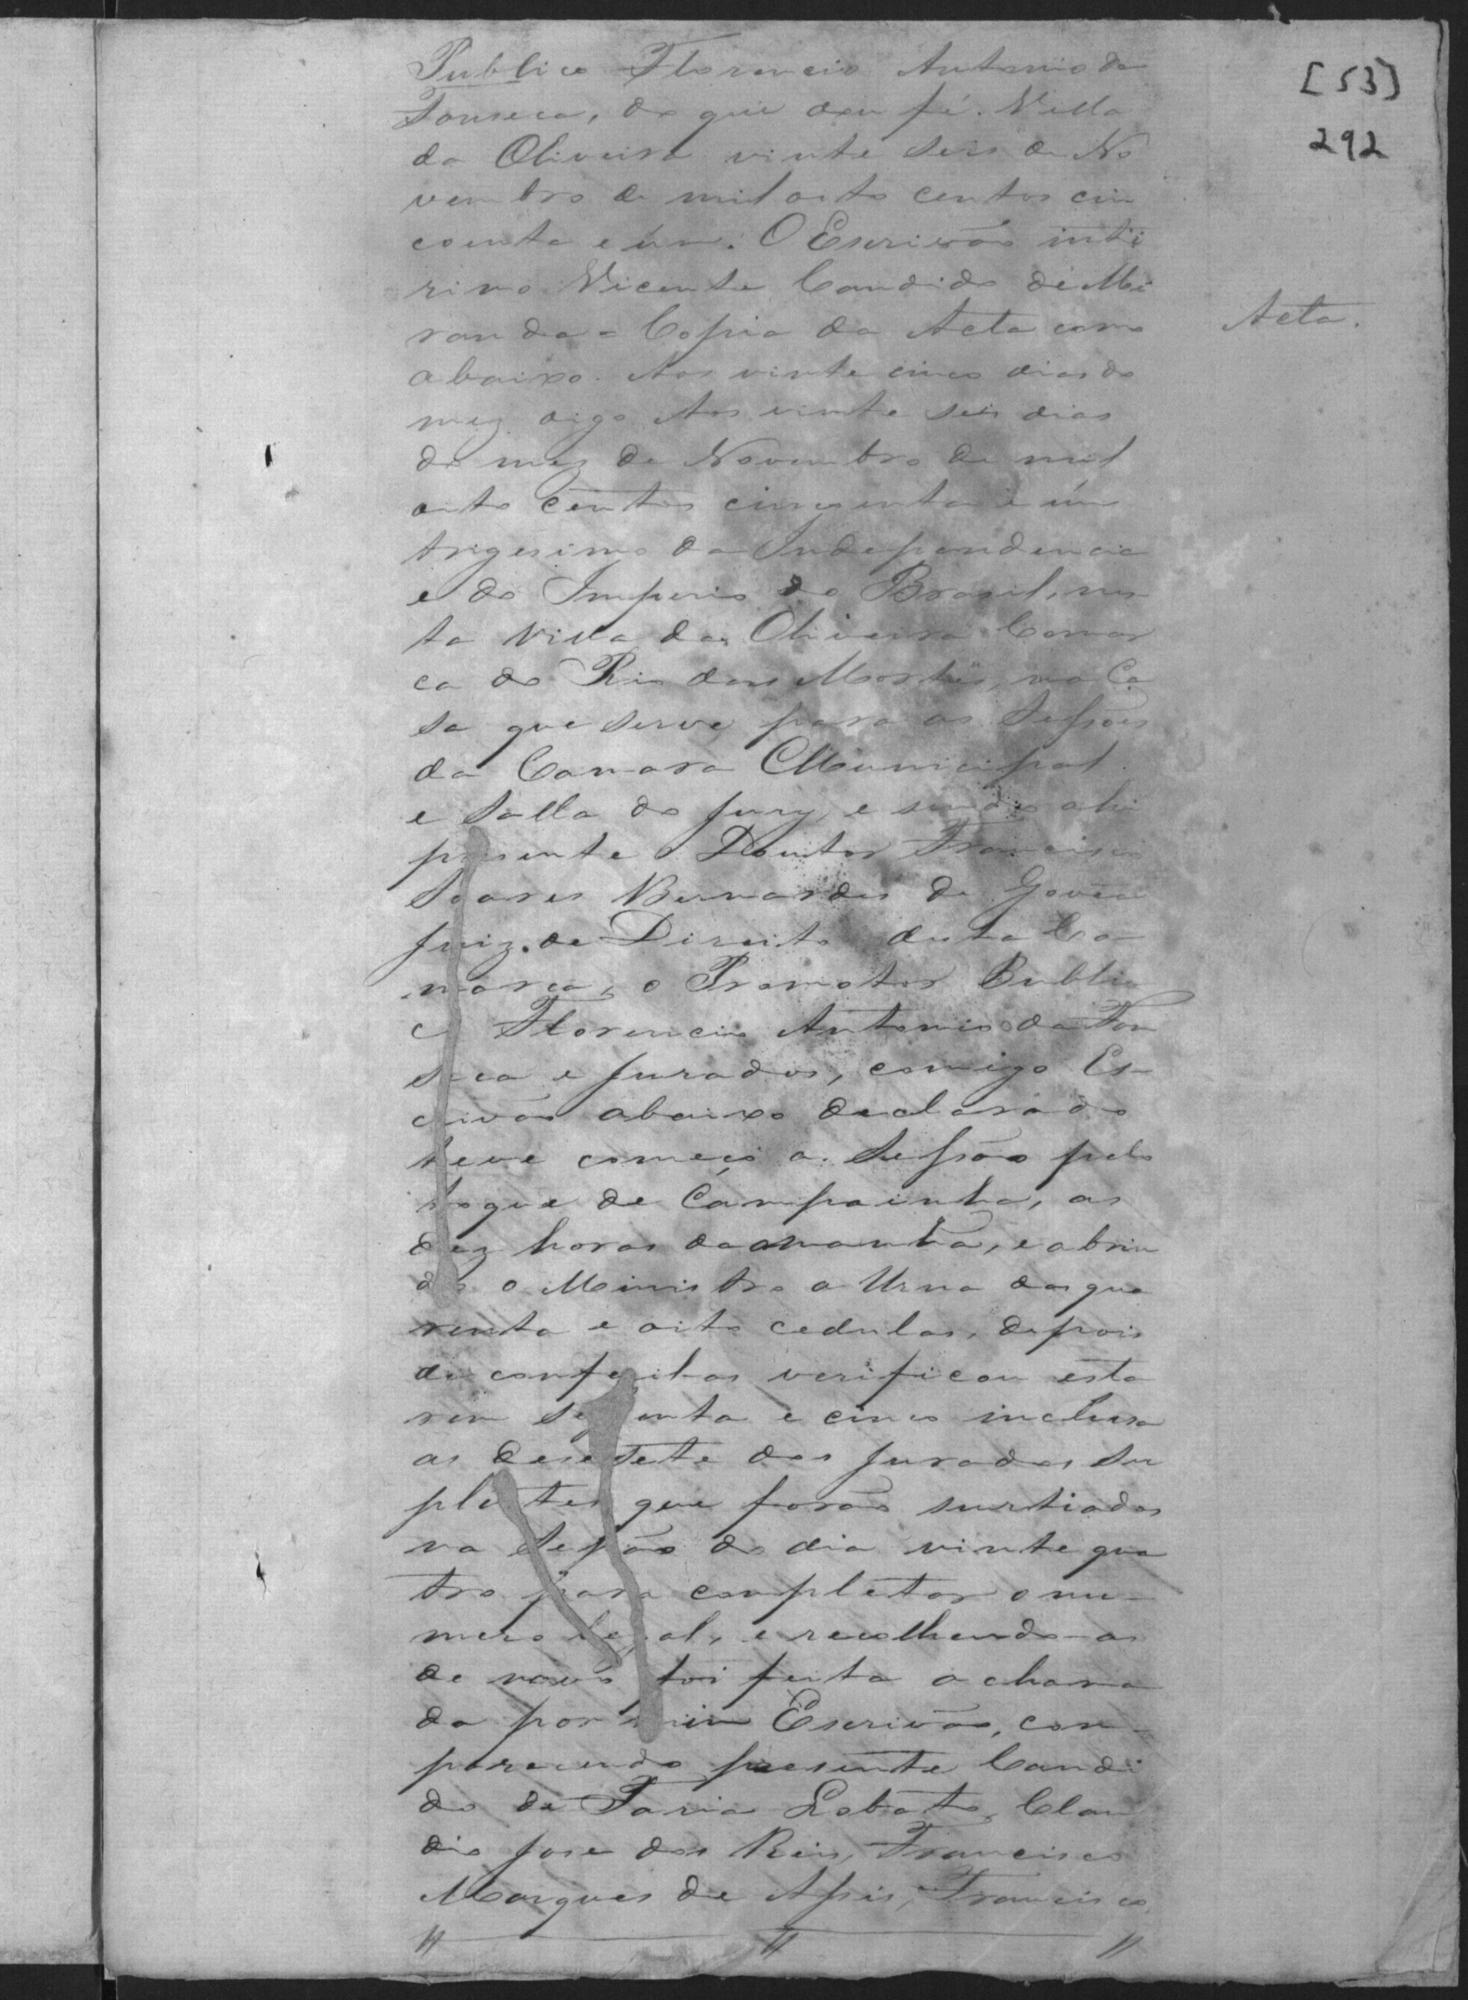 [53]
292
Publico Florencio Antonio da
Fonseca, do que dou fé. Villa
da Oliveira vinte seis de No
vembro de mil oito centos cin
coenta e úm. O Escrivão inte
rino Vicente Candido de Mi
randa = Copia da Acta como
Acta.
abaixo. Aos vinte cinco dias do
mez digo Aos vinte seis dias
do mez de Novembro de mil
oito centos cincoenta e úm
trigesimo da Independencia
e do Imperio do Brasil, nes
ta Villa da Oliveira Comar
ca do Rio das Mortes, na Ca
sa que serve para as Sessões
da Camara Municipal
e Salla do Jury, e sendo ahi
presente o Doutor Francisco
Soares Bernardes de Gouvea
Juiz de Direito desta Co
marca, o Promotor Publi
co Florencio Antonio da Fon
seca e Jurados, comigo Es
crivão abaixo declarado
teve começo a Sessão pelo
toque de Campainha, as
dez horas da manhã, e abrin
do o Ministro a Urna das qua
renta e oito cedulas, depois
de conferilas verificou esta
rem sessenta e cinco inclusa
as desesete dos Jurados Su
plentes que forão surtiados
na Sessão do dia vinte qua
tro para completar o nu-
mero legal, e recolhendo-as
de novo foi feita a chama
da por mim Escrivão, com-
parecendo presente Candi
do de Faria Lobato, Clau
dio Jose dos Reis, Francisco
Marques de Assis, Francisco